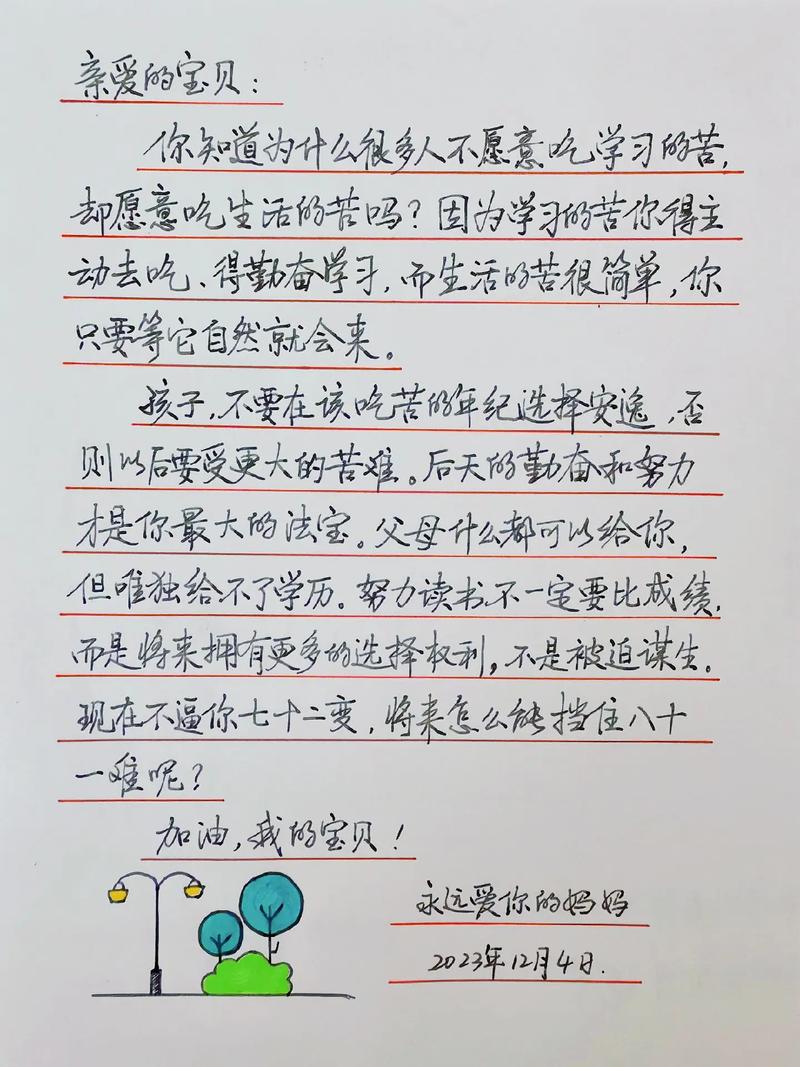 亲爱的宝贝：
你知道为什么很多人不愿意吃学习的苦，
却愿意吃生活的苦吗？因为学习的苦你得主
动去吃、得勤奋学习，而生活的苦很简单，你
只要等它自然就会来。
孩子，不要在该吃苦的年纪选择安逸，否
则以后要受更大的苦难。后天的勤奋和努力
才是你最大的法宝。父母什么都可以给你，
但唯独给不了学历。努力读书，不一定要比成绩，
而是将来拥有更多的选择权利，不是被迫谋生。
现在不逼你七十二变，将来怎么能挡住八十
一难呢？
加油，我的宝贝！
永远爱你的妈妈
2023年12月4日.